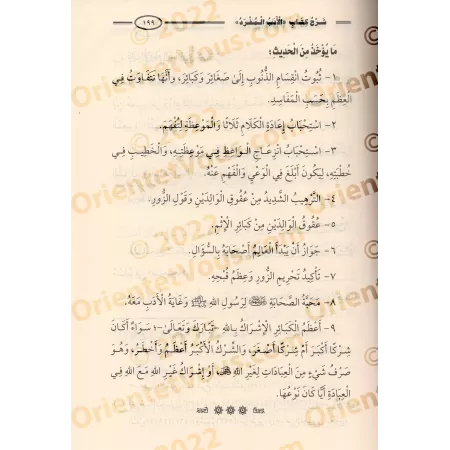 شَرْحُ كِتَابِ «الْأَدَبُ الْمُفْرَدُ»
١٩٩
مَا يُؤْخَذُ مِنَ الْحَدِيثِ:
١- ثُبُوتُ انْقِسَامِ الذُّنُوبِ إِلَى صَغَائِرَ وَكَبَائِرَ، وَأَنَّهَا تَتَفَاوَتُ فِي
الْعِظَمِ بِحَسَبِ الْمَفَاسِدِ.
٢- اسْتِحْبَابُ إِعَادَةِ الْكَلَامِ ثَلَاثًا وَالْمَوْعِظَةِ لِتُفْهَمَ.
٣- اسْتِحْبَابُ انْزِعَاجِ الْوَاعِظِ فِي مَوْعِظَتِهِ، وَالْخَطِيبِ فِي
خُطْبَتِهِ، لِيَكُونَ أَبْلَغَ فِي الْوَعْيِ وَالْفَهْمِ عَنْهُ.
٤- التَّرْهِيبُ الشَّدِيدُ مِنْ عُقُوقِ الْوَالِدَيْنِ وَقَوْلِ الزُّورِ.
٥- عُقُوقُ الْوَالِدَيْنِ مِنْ كَبَائِرِ الْإِثْمِ.
٦- جَوَازُ أَنْ يَبْدَأَ الْعَالِمُ أَصْحَابَهُ بِالسُّؤَالِ.
٧- تَأْكِيدُ تَحْرِيمِ الزُّورِ وَعِظَمُ قُبْحِهِ.
٨- مَحَبَّةُ الصَّحَابَةِ لِرَسُولِ اللهِ ﷺ وَغَايَةُ الْأَدَبِ مَعَهُ.
٩- أَعْظَمُ الْكَبَائِرِ الْإِشْرَاكُ بِاللهِ -تَبَارَكَ وَتَعَالَى- سَوَاءٌ أَكَانَ
شِرْكًا أَكْبَرَ أَمْ شِرْكًا أَصْغَرَ، وَالشِّرْكُ الْأَكْبَرُ أَعْظَمُ وَأَخْطَرُ، وَهُوَ
صَرْفُ شَيْءٍ مِنَ الْعِبَادَاتِ لِغَيْرِ اللهِ، أَوْ إِشْرَاكُ غَيْرِ اللهِ مَعَ اللهِ فِي
الْعِبَادَةِ أَيًّا كَانَ نَوْعُهَا.
OrienteVous.com © 2022